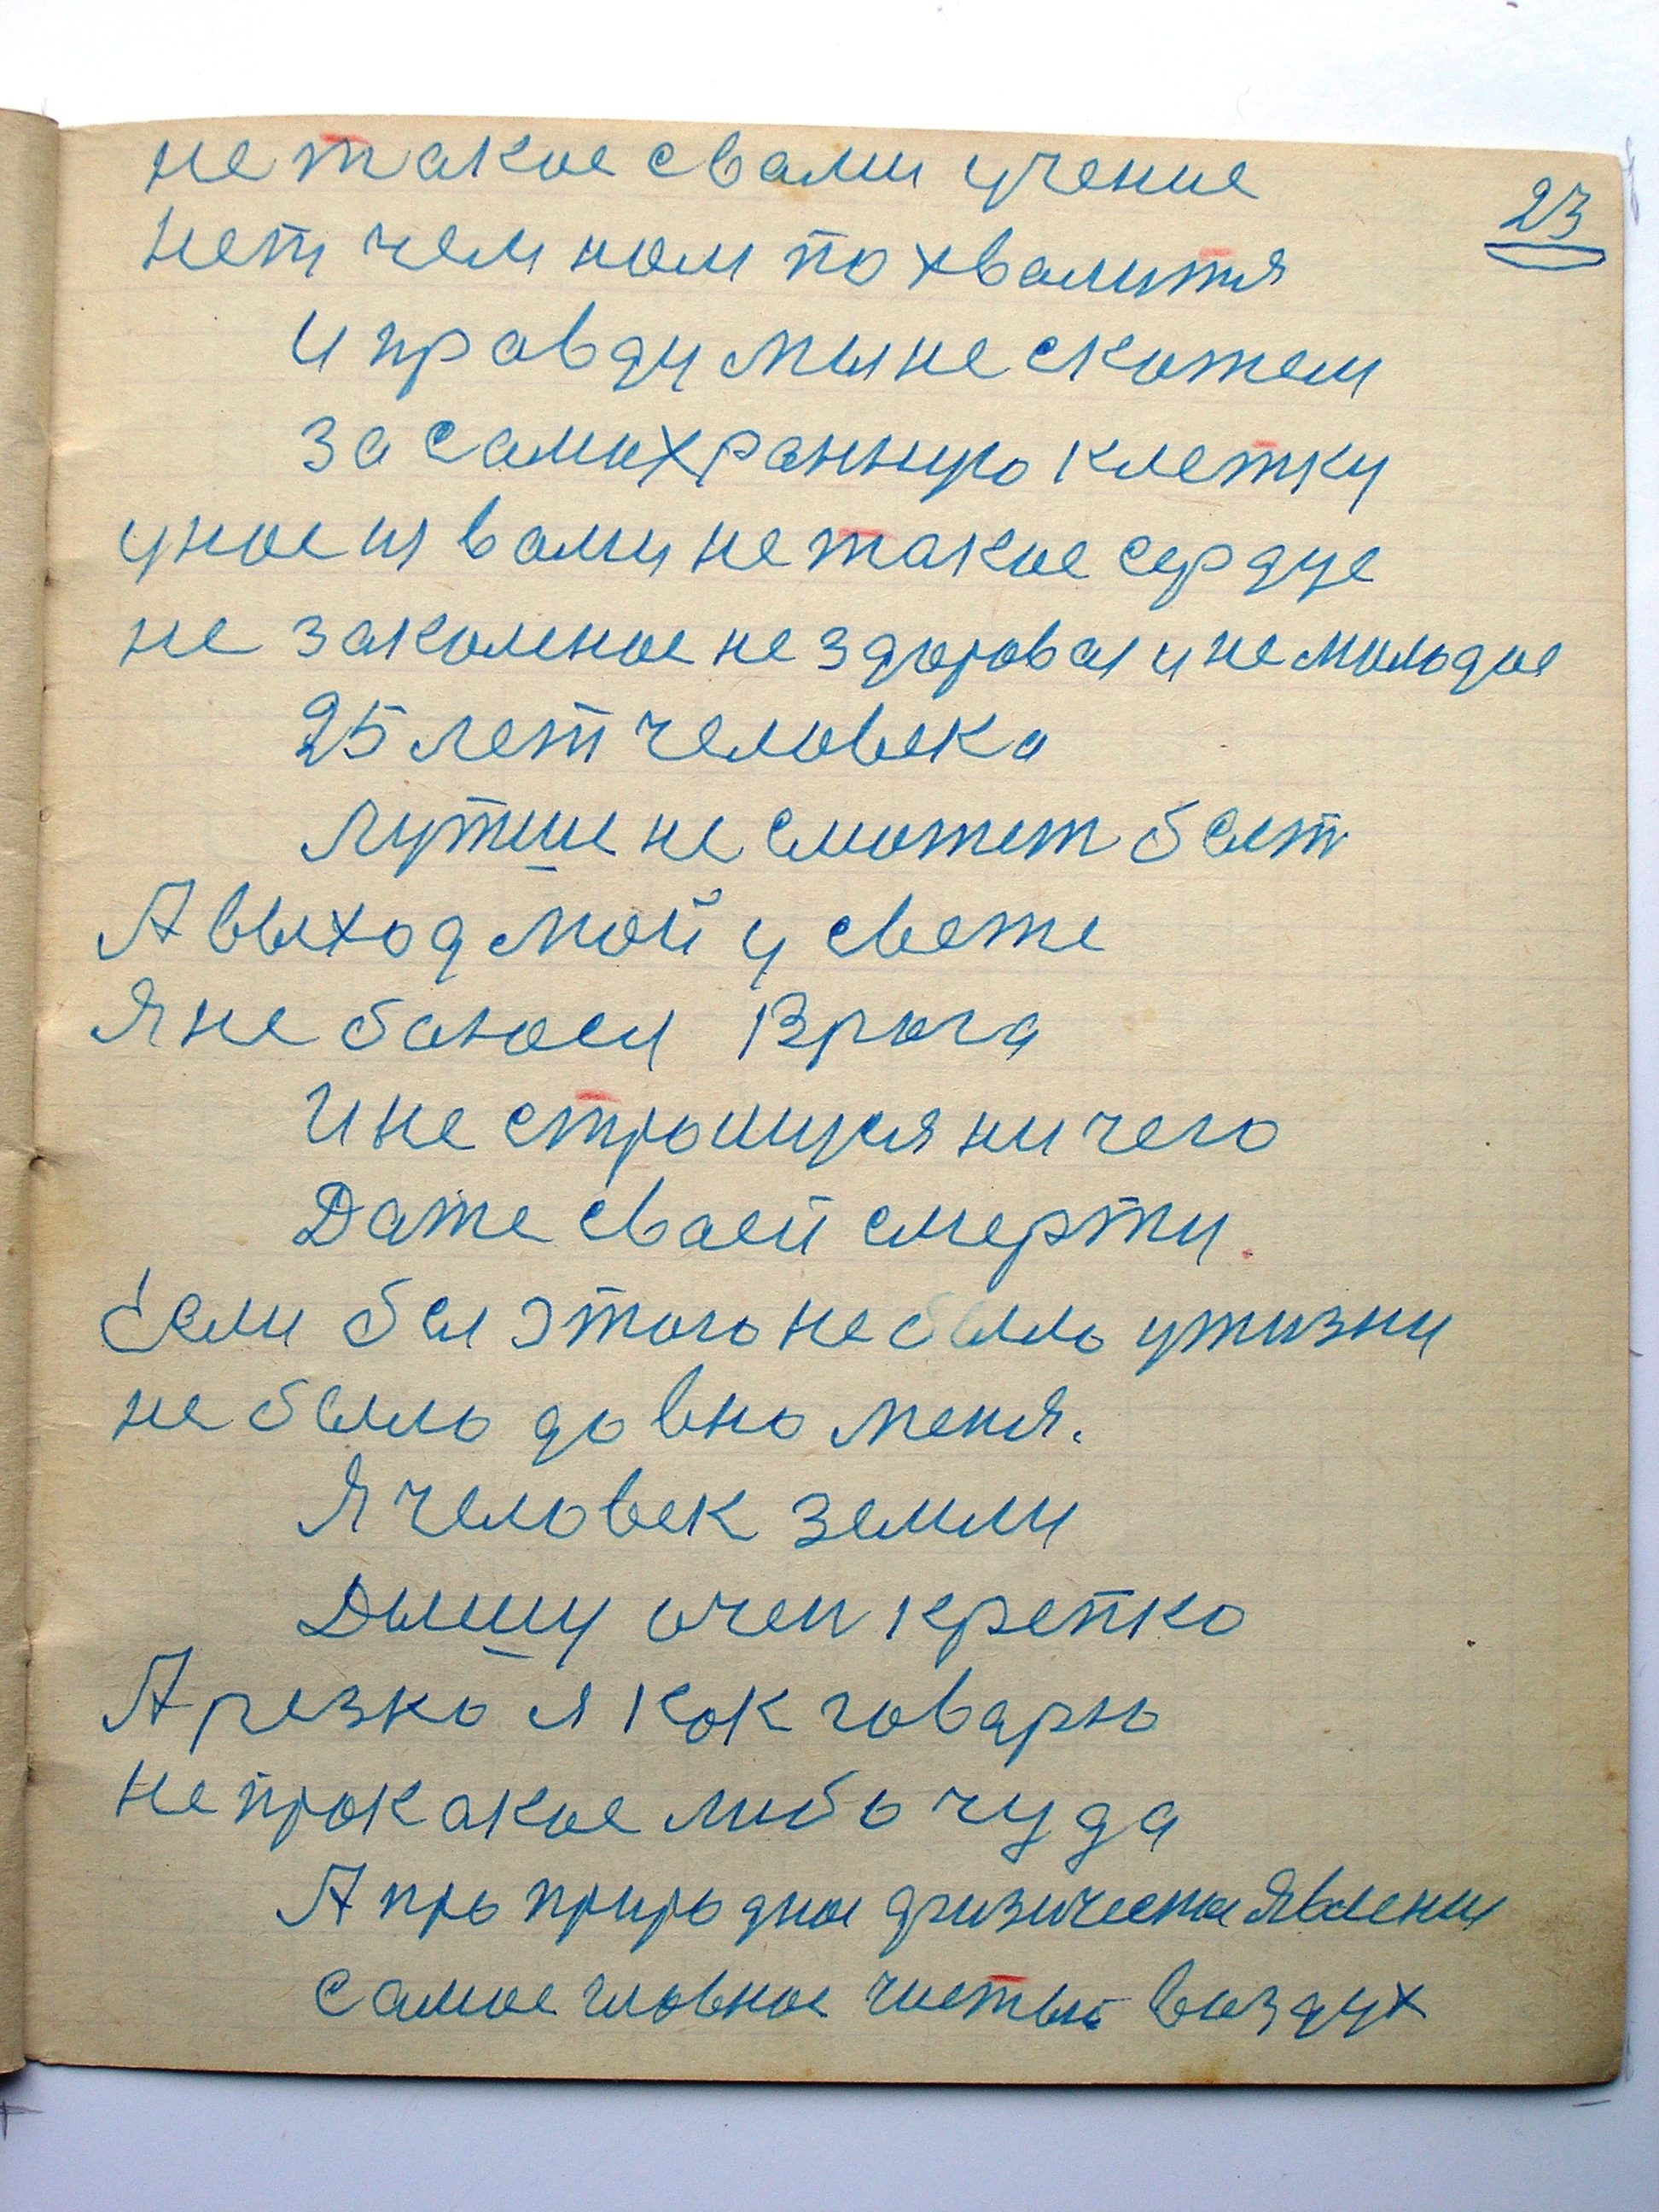 не такое с вами учение
23
нет чем нам похвалится
и правди мы не скажем
за самихранную клетку
у мое и я вами не такое сердце
не закаленое не здоровая и не молодое
25 лет человека
лутше не сможет быт
А выход мой у свете
Я не баюсы Врага
И не страшуся ничего
Даже сваей смерти.
Если бы этого не было у жизни
не было давно меня.
Я человек земли
Дышу очен крепко
А резко я как говарю
не прокакое либо чуда
А про природное физическое явлении
самое главное чистый воздух